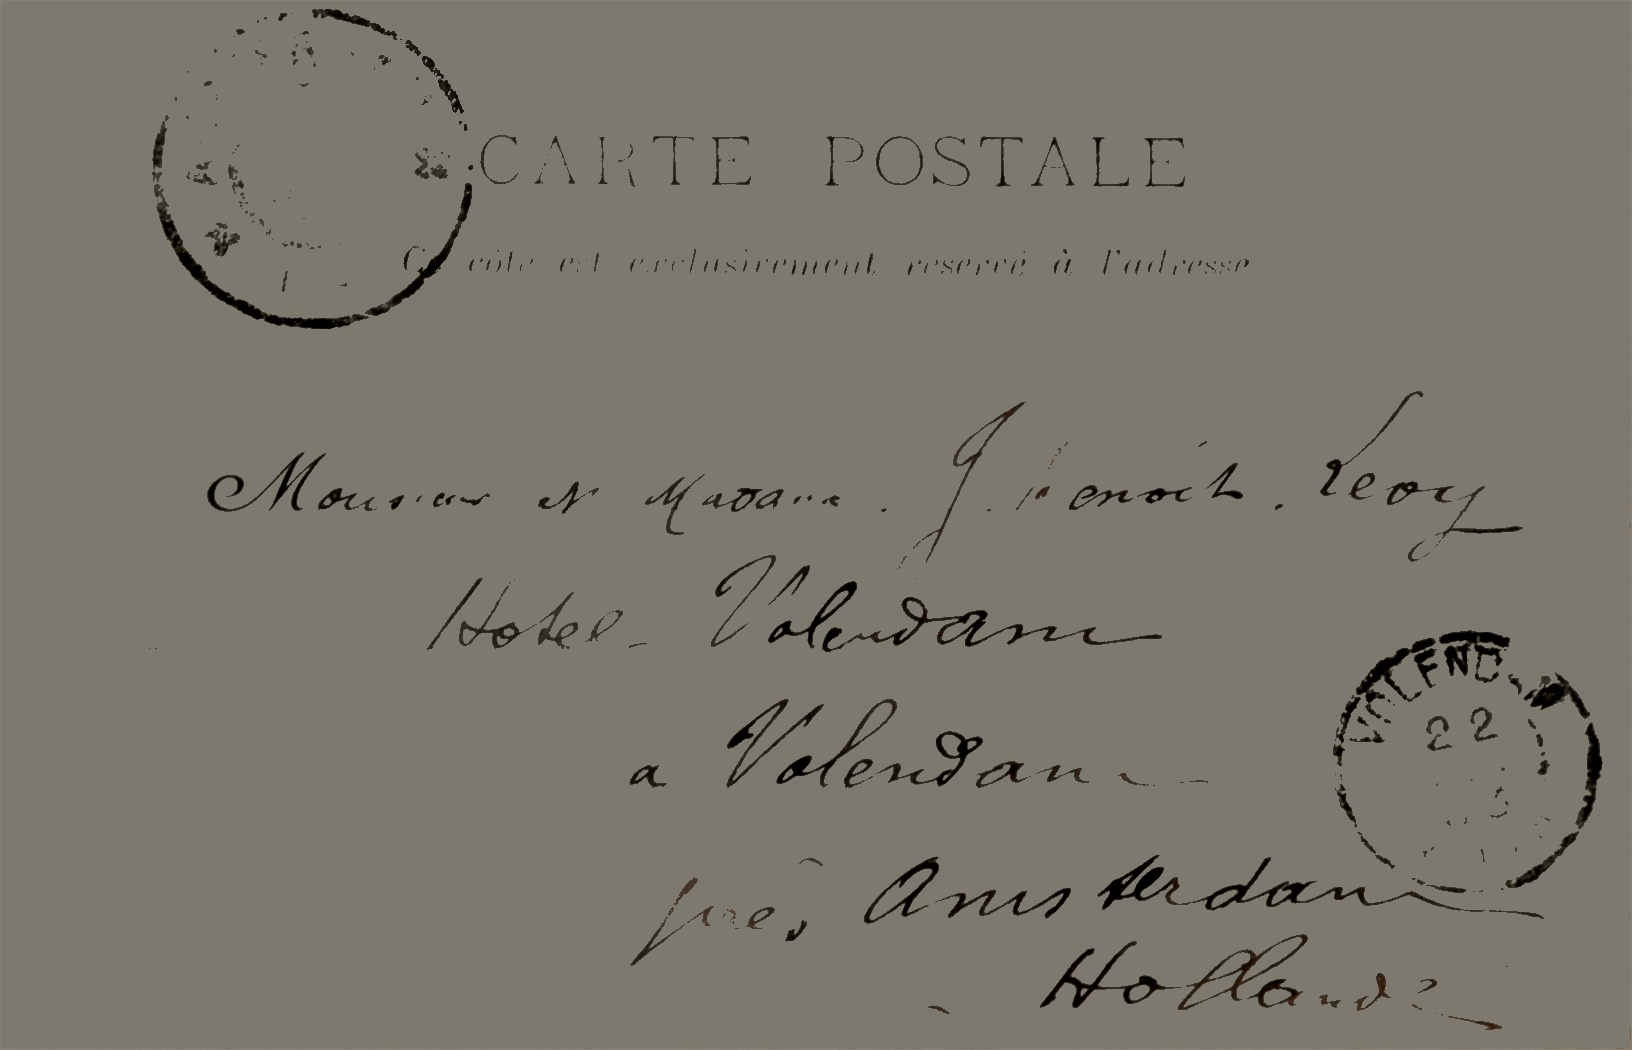 CARTE POSTALE
Ce côté est exclusivement réservé à l'adresse
Monsieur et Madame. J. Benoit. Levy
Hotel - Volendam
a Volendam
près Amsterdam
Hollande
VOLENDAM
22